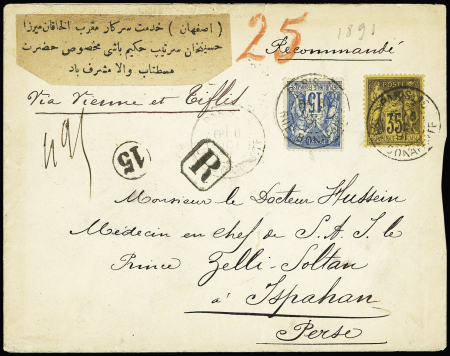 ( اصفهان ) خدمت سرکار مقرب الخاقان میرزا
حسینخان سرتیپ حکیم باشی مخصوص حضرت
مستطاب والا مشرف باد
25
1891
Recommandé
Via Vienne et Tiflis
15
R
15
POSTE
35
BONAPARTE
Monsieur le Docteur Hussein
Médecin en chef de S. A. I. le
Prince Zelli-Soltan
à Ispahan
Perse